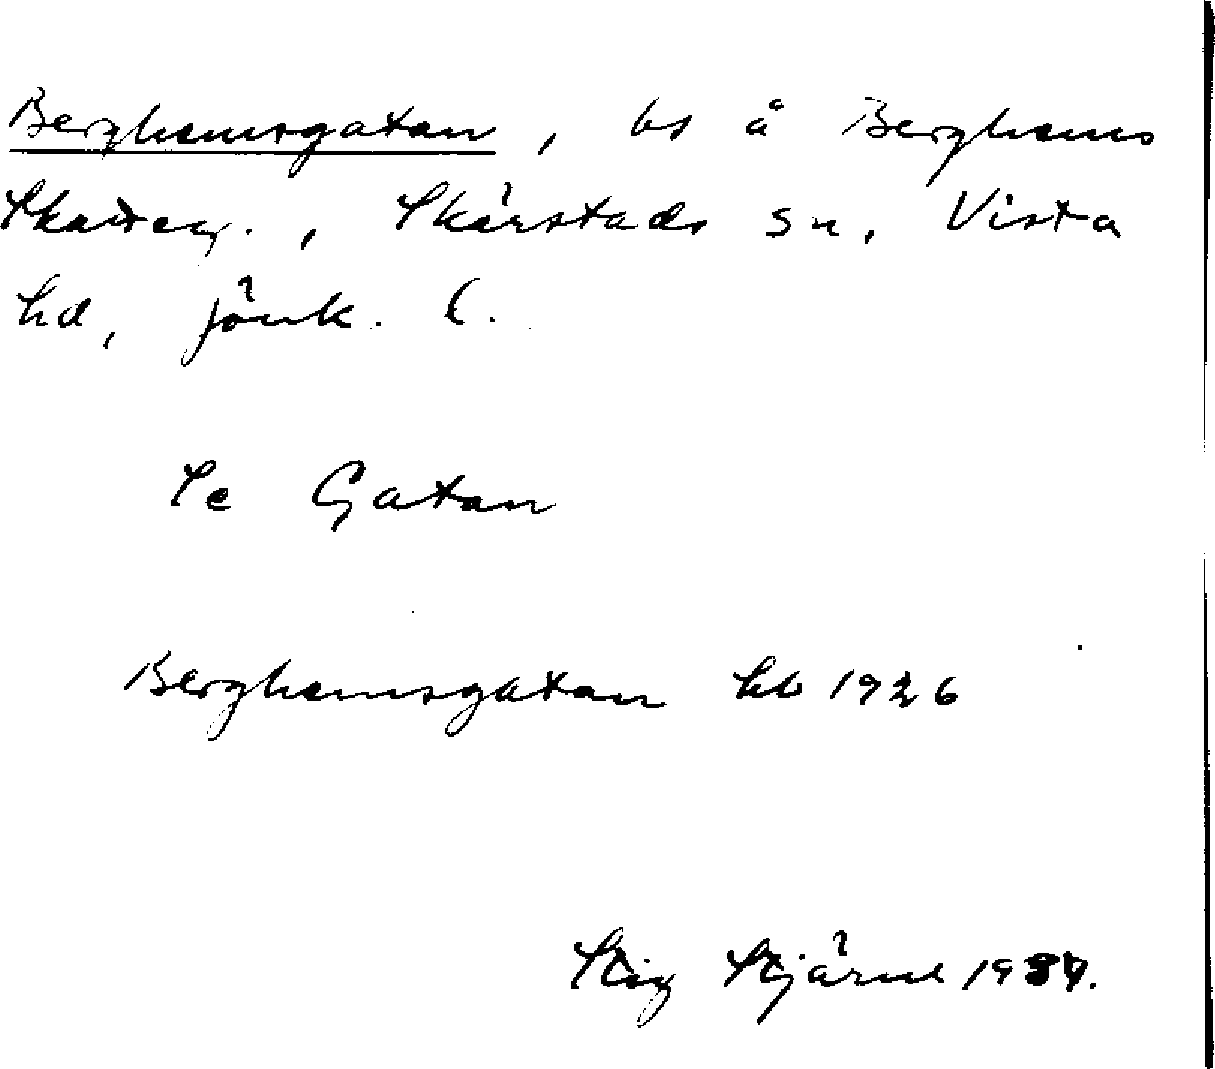 Berghemsgatan, bs å Berghems
Skatteg., Skärstads sn, Vista
hd, Jönk. l.
Se Gatan
Berghemsgatan hb 1926
Stig Stjärne